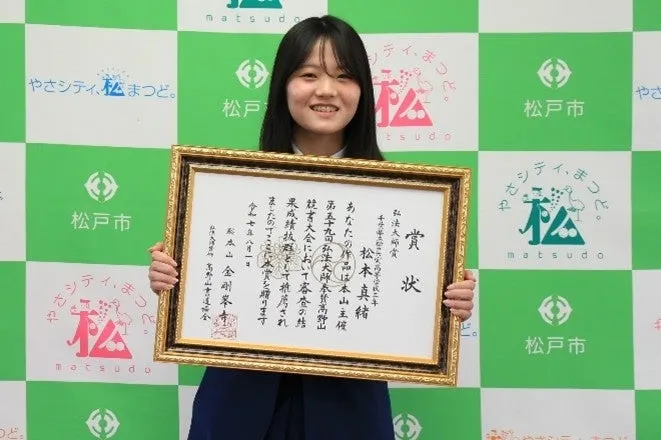 賞状
弘法大師賞
松本真緒
あなたの作品は本山主催
第五十九回弘法大師奉賛高野山
競書大会において審査の結
果成績抜群として推薦され
ましたのでここに本賞を贈ります
令和七年八月一日
総本山金剛峯寺
高野山書道協会
matsudo
やさシティ、まつど。
松
やさシティ、まつど。
松
matsudo
松戸市
松戸市
やさシティ、まつど。
松
matsudo
松戸市
やさシティ、まつど。
松
matsudo
松戸市